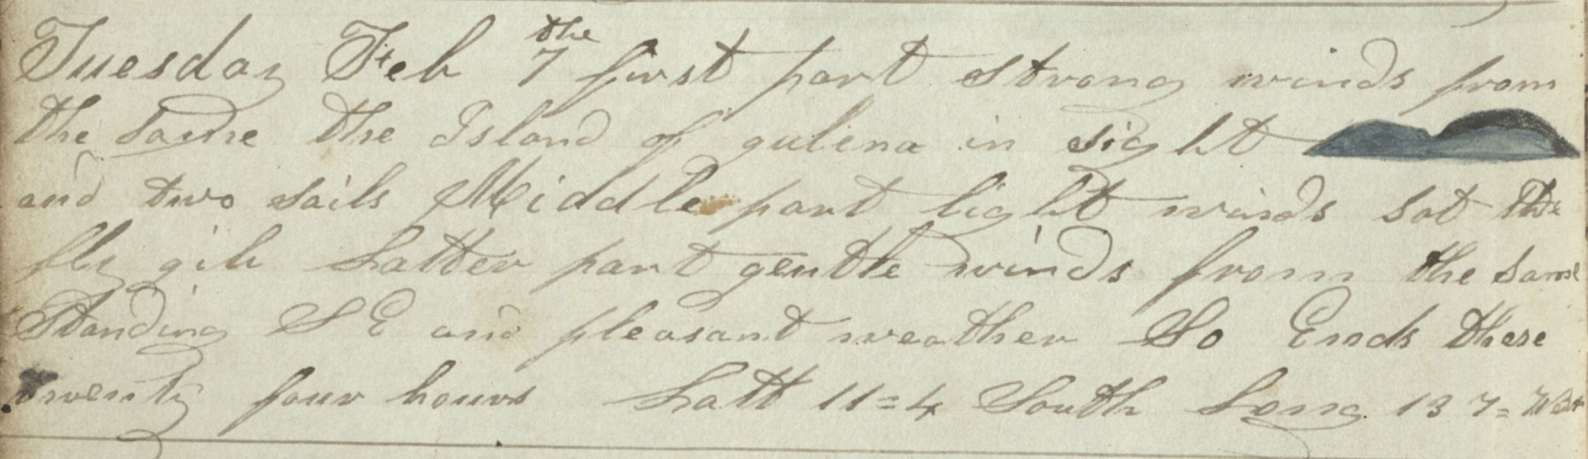 Tuesday Feb 7 the first part strong winds from
the same the Island of gulena in sight
and two sails Middle part light winds sat the
fly gib Latter part gentle winds from the same
Standing S E and pleasant weather So Ends these
twenty four hours Latt 11=4 South Long 137= West